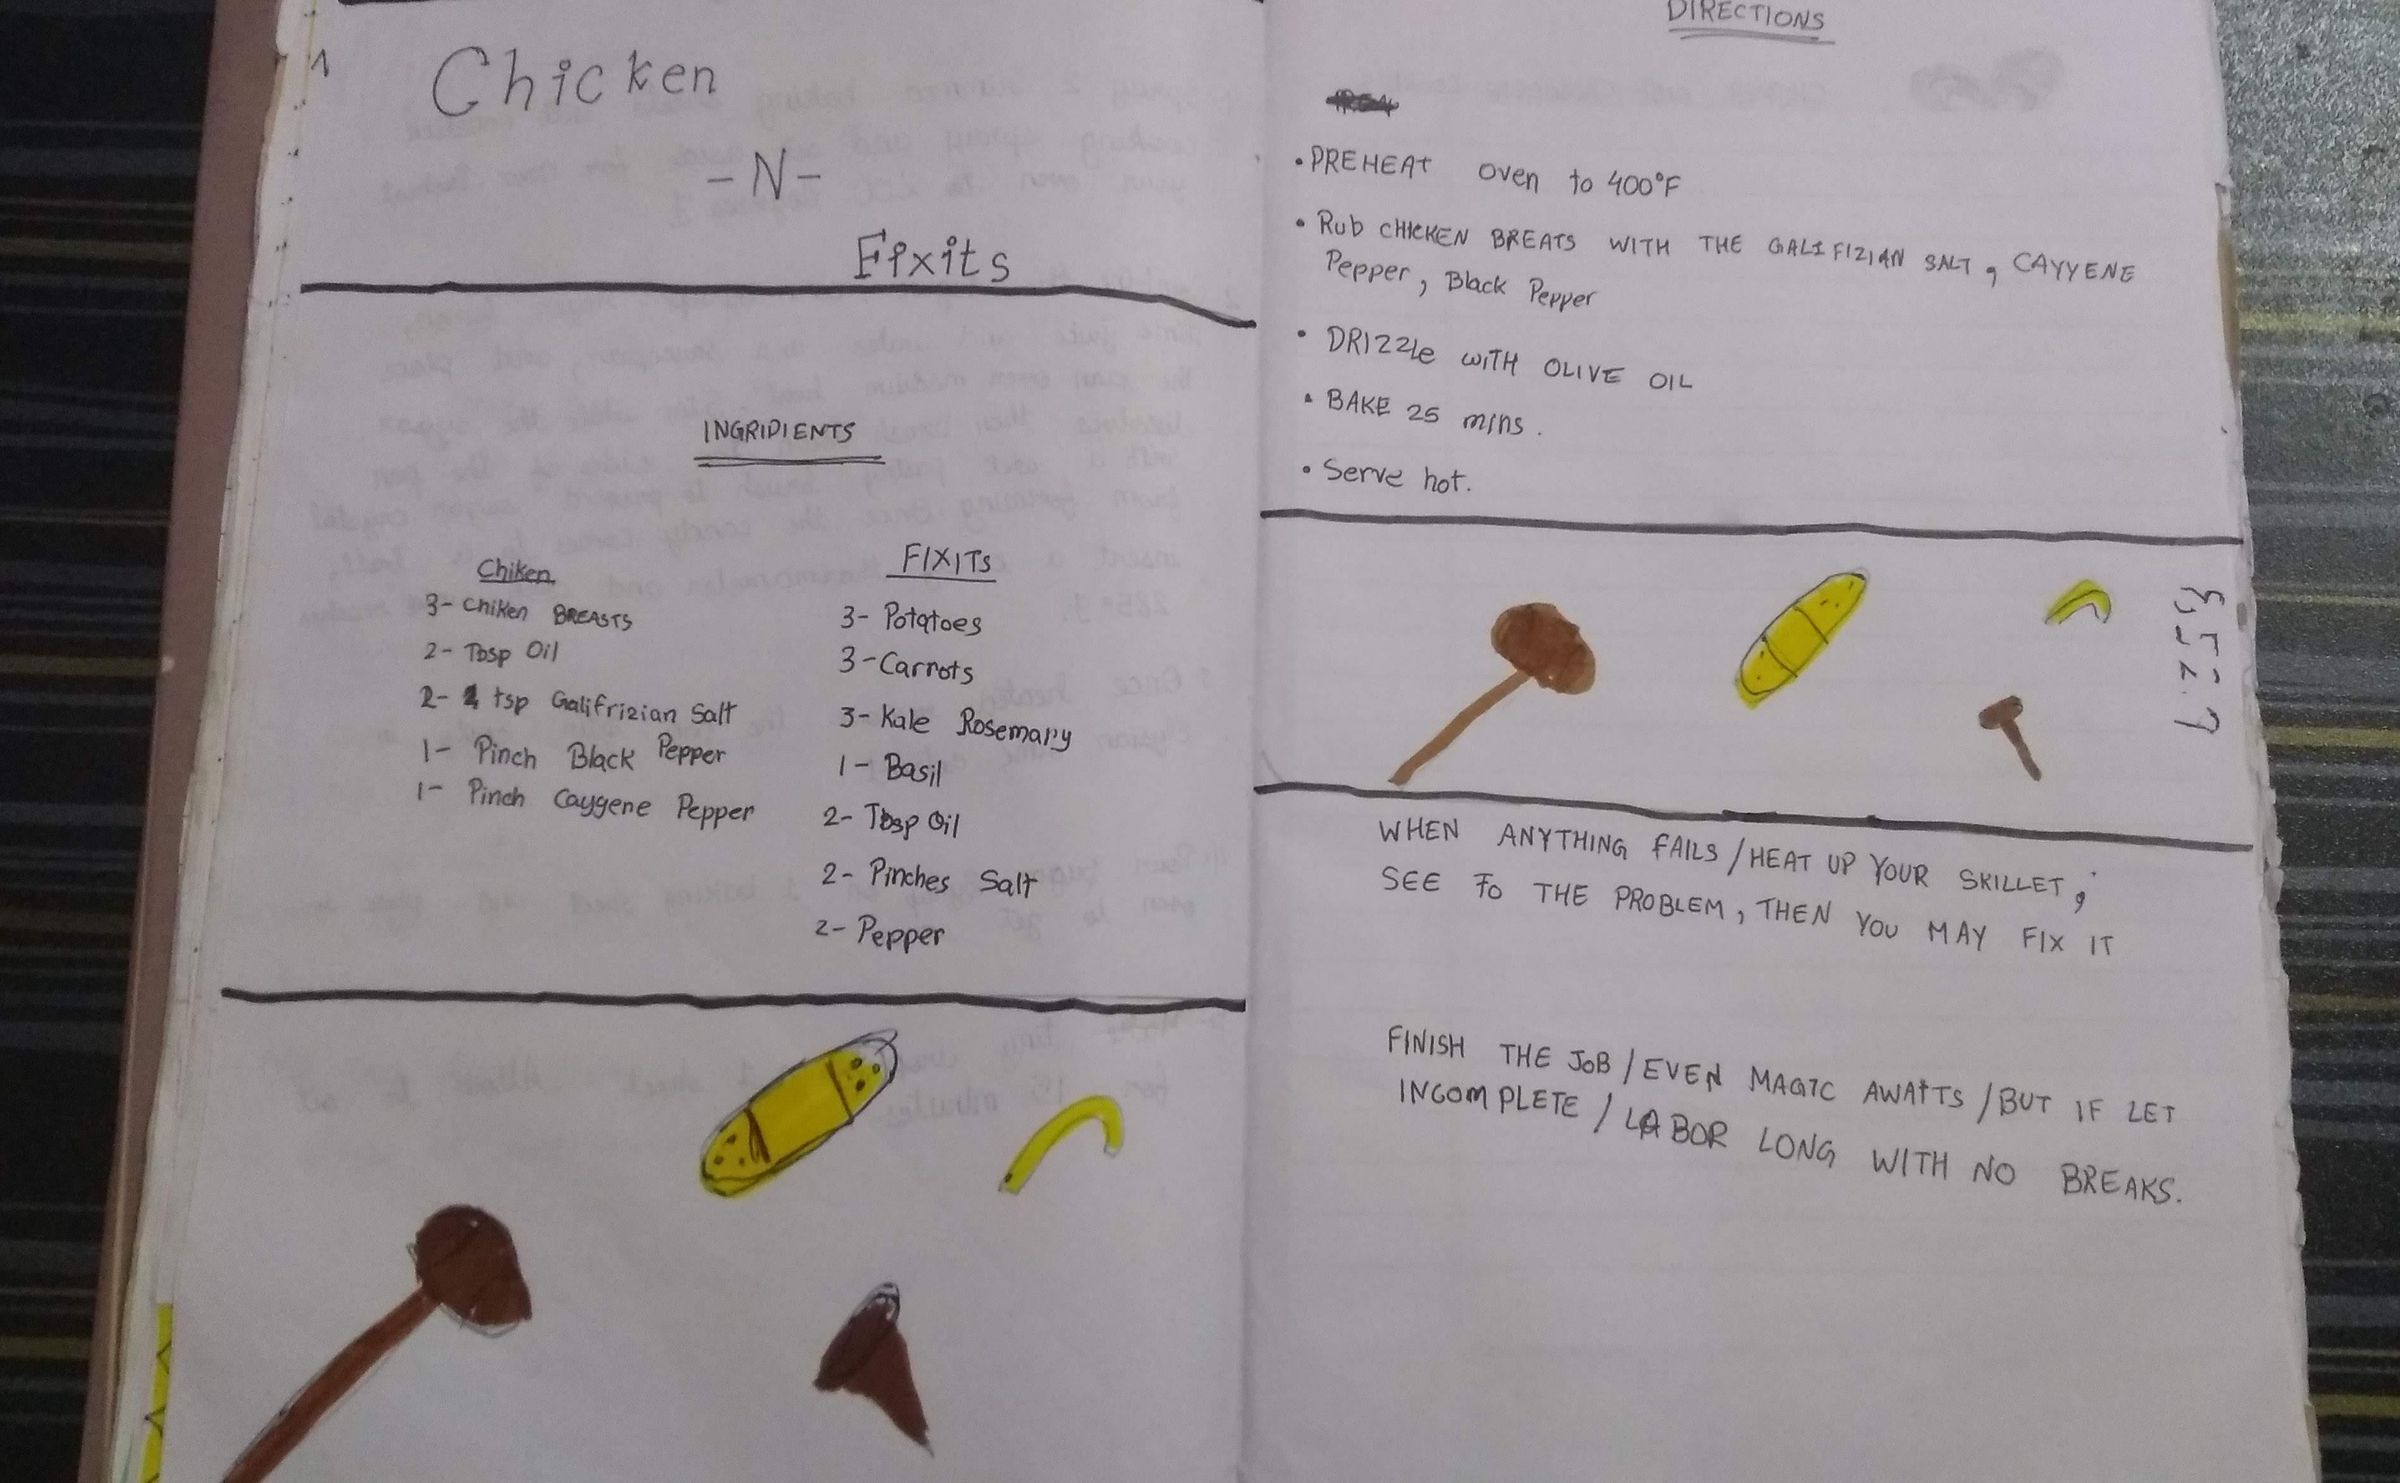 Chicken
- N -
Fixits
INGRIDIENTS
Chiken
3- Chiken BREASTS
2- Tbsp Oil
2- tsp Galifrizian Salt
1- Pinch Black Pepper
1- Pinch Caygene Pepper
FIXITs
3- Potatoes
3- Carrots
3- Kale Rosemary
1- Basil
2- Tbsp Oil
2- Pinches Salt
2- Pepper
DIRECTIONS
• PREHEAT oven to 400°F
• Rub CHICKEN BREATS WITH THE GALIFIZIAN SALT, CAYYENE
Pepper, Black Pepper
• DRIZZle WITH OLIVE OIL
• BAKE 25 mins.
• Serve hot.
WHEN ANYTHING FAILS / HEAT UP YOUR SKILLET;
SEE TO THE PROBLEM, THEN YOU MAY FIX IT
FINISH THE JOB / EVEN MAGIC AWAITS / BUT IF LET
INCOMPLETE / LABOR LONG WITH NO BREAKS.